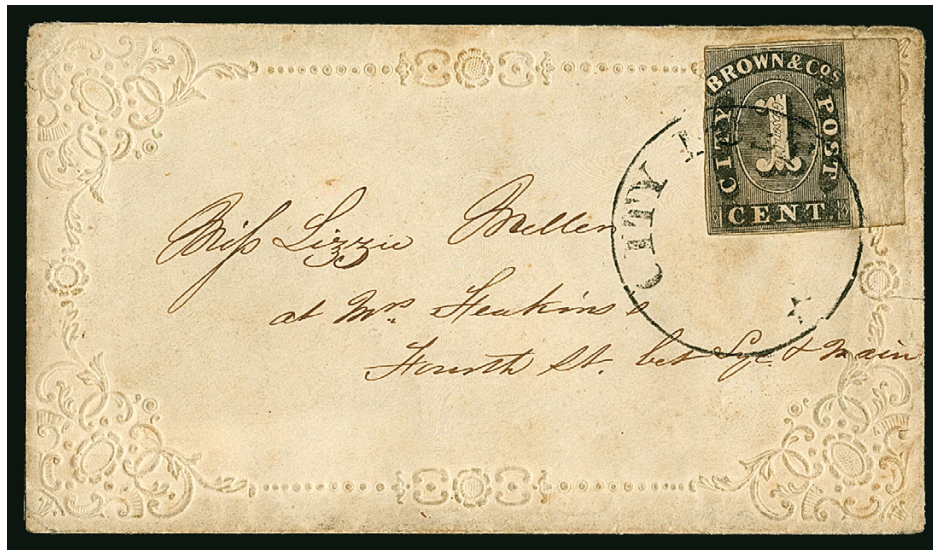 BROWN & COS
CITY POST
1
CENT
CITY
Miss Lizzie Mellen
at Mrs. Heakins
Fourth St. bet Syc. & Main